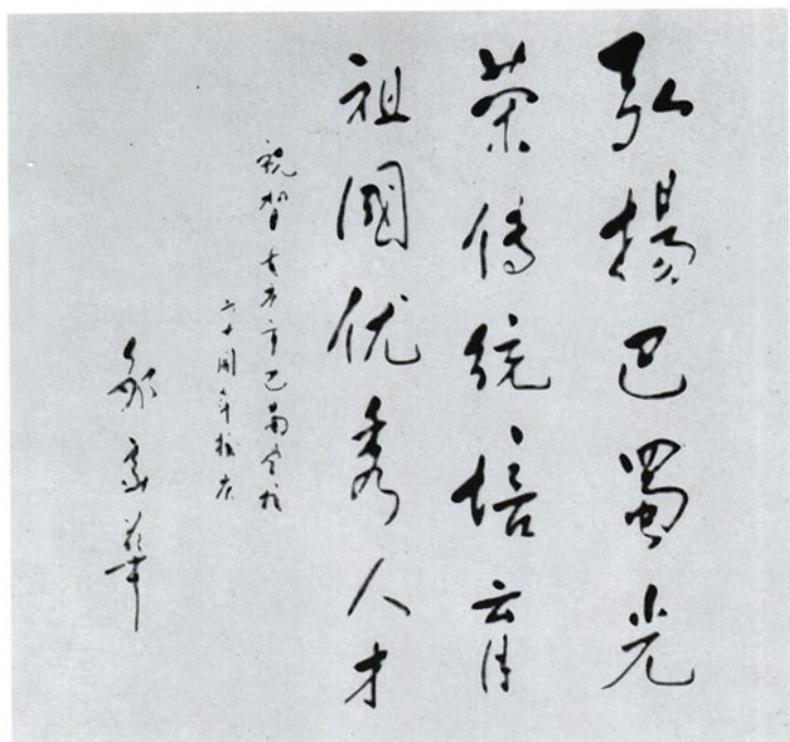 弘揚巴蜀光
荣傳統培育
祖國优秀人才
祝贺重庆市巴蜀学校
六十周年校庆
邹家華